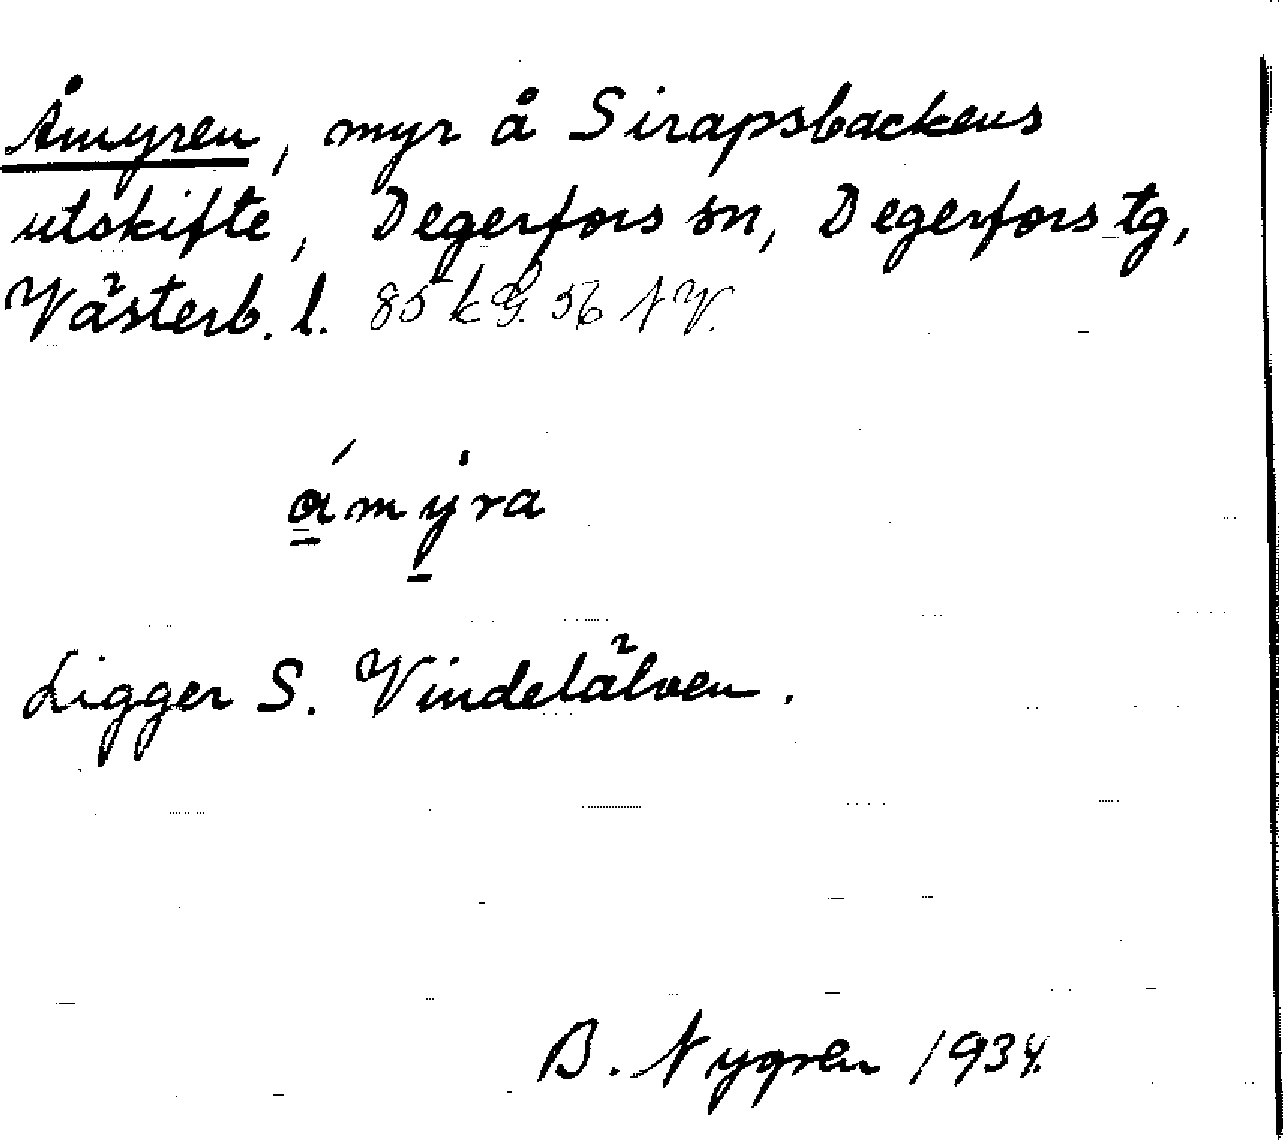 Åmyren, myr å Sirapsbackens
utskifte, Degerfors sn, Degerfors tg,
Västerb. l. 85 k G. 56 NV.
ámýra
Ligger S. Vindelälven.
B. Nygren 1934.